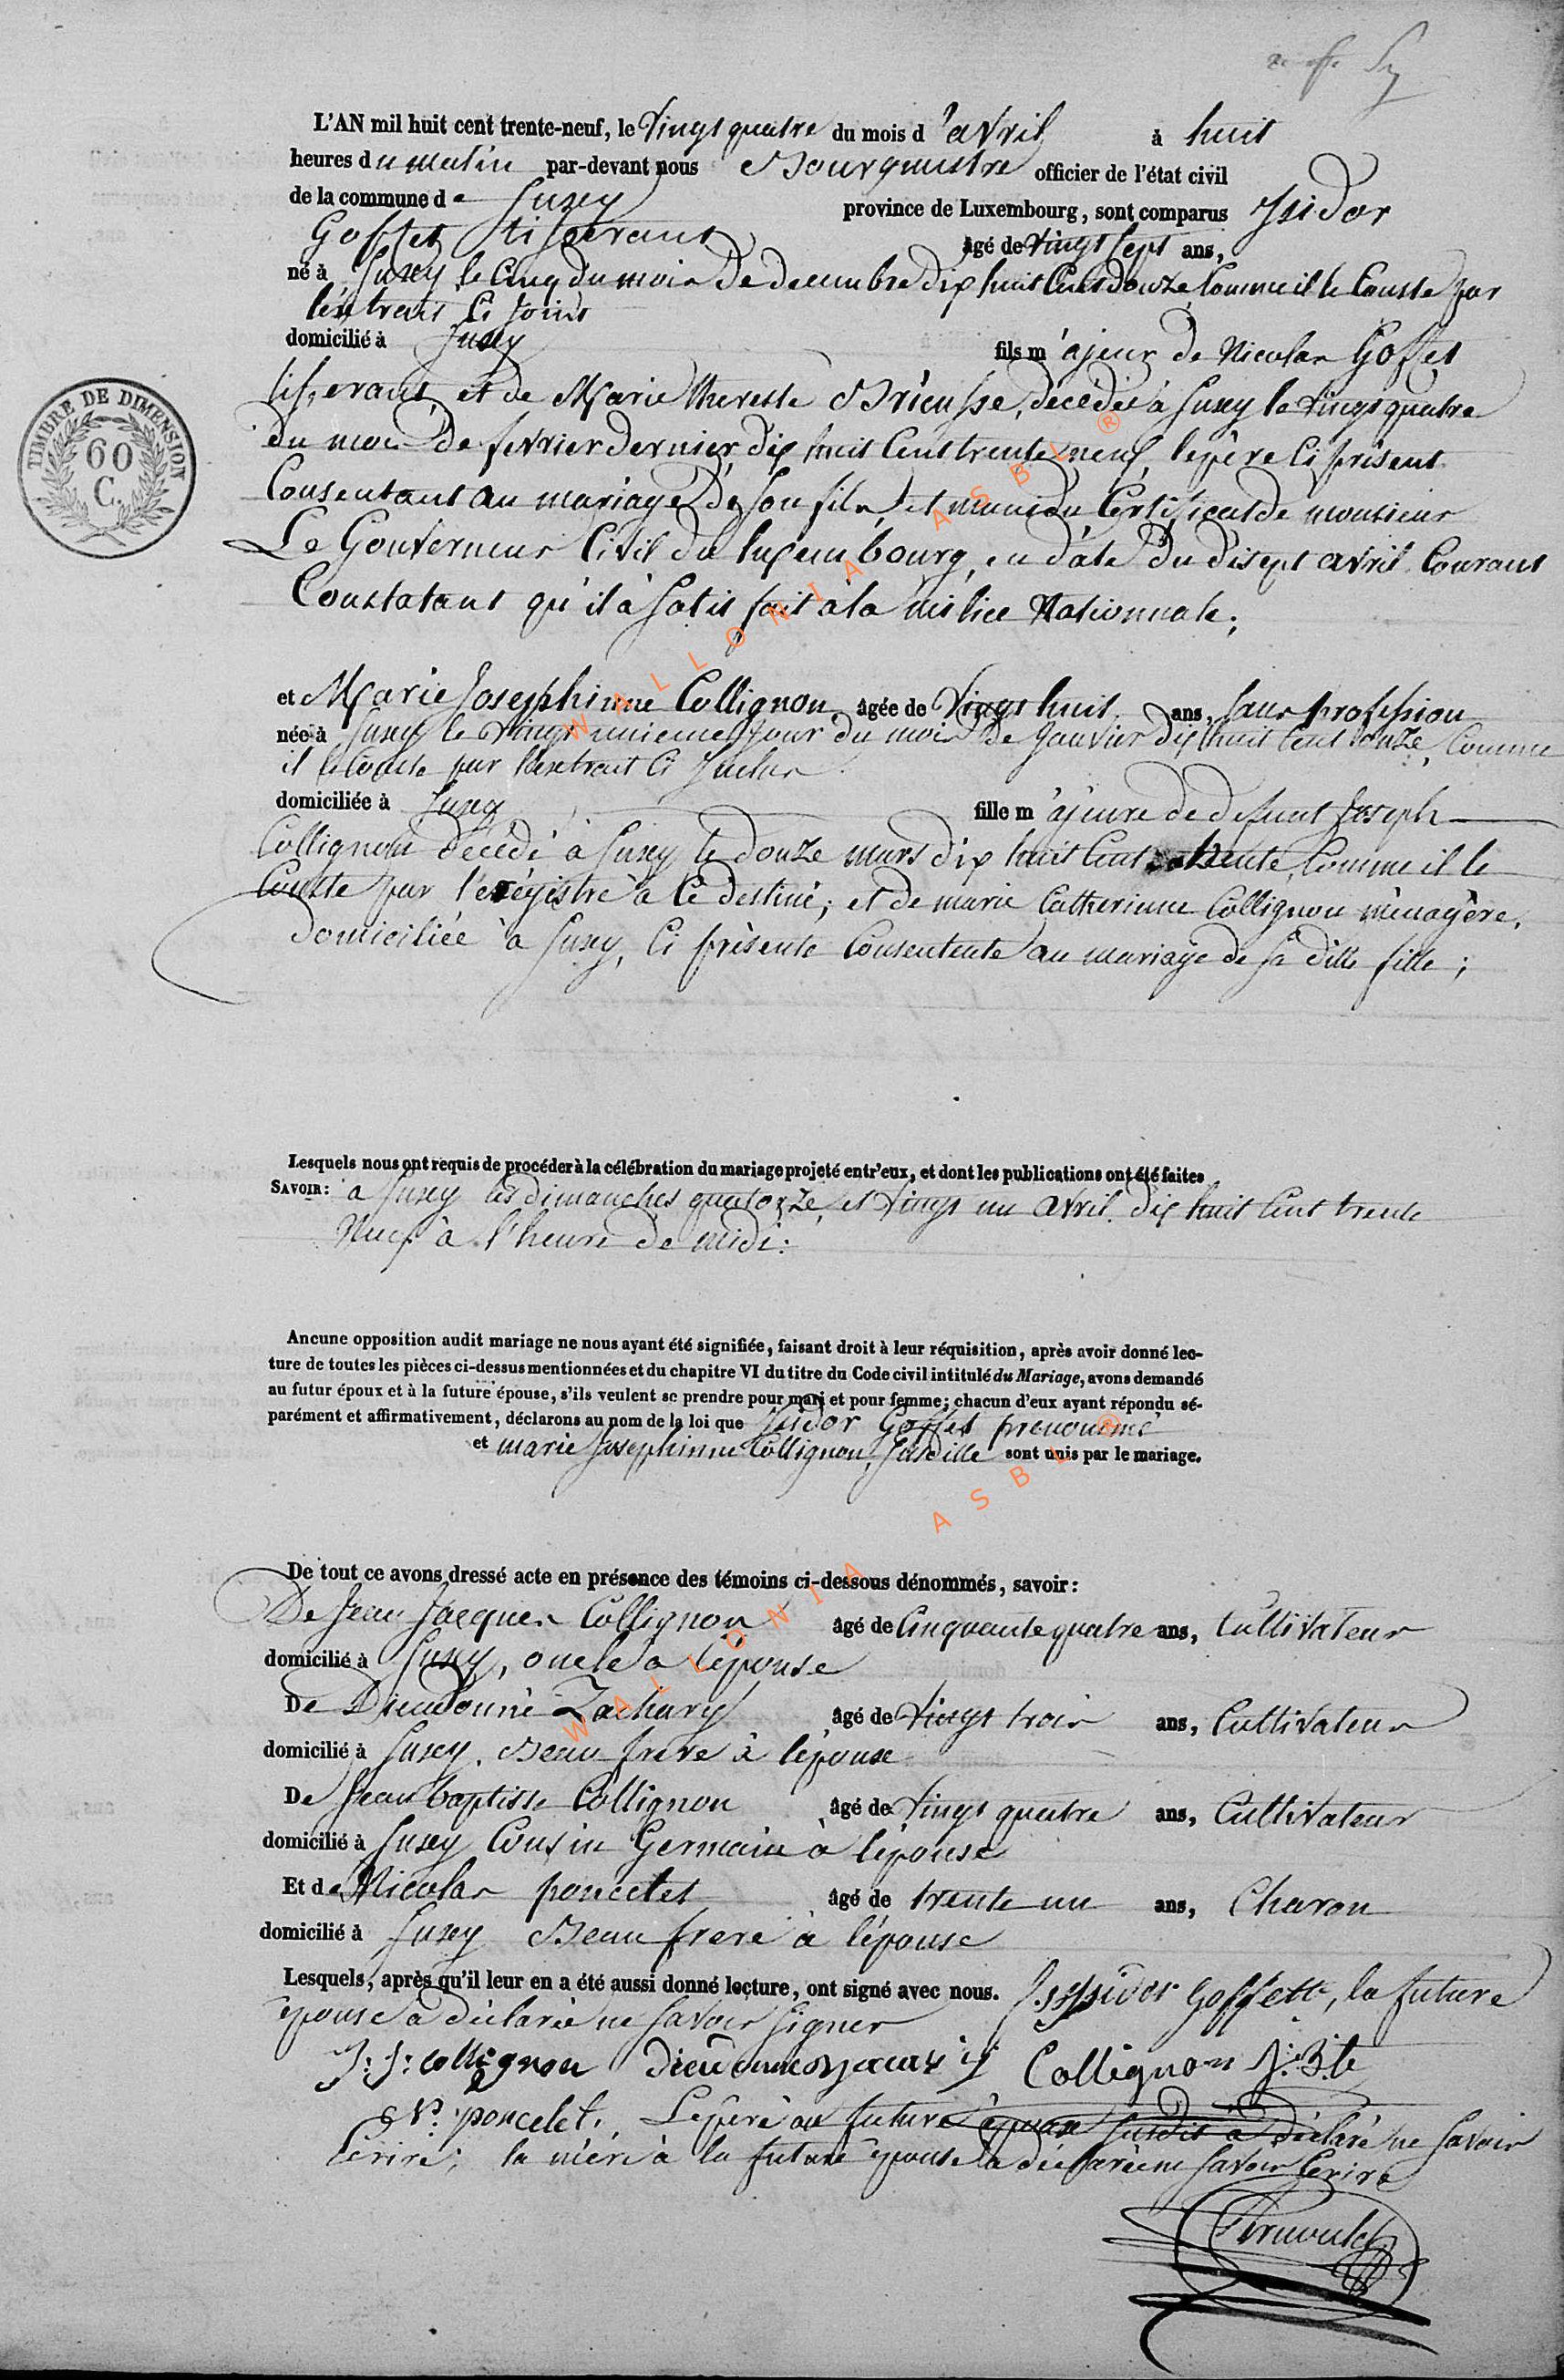 L'AN mil huit cent trente-neuf, le vingt quatre du mois d'avril à huit
heures du matin par-devant nous Bourgmestre officier de l'état civil
de la commune de Suxy province de Luxembourg, sont comparus Isidor
Goffet tisserant âgé de vingt sept ans,
né à Suxy le cinq du mois de decembre dix huit cent douze, comme il le conste par
l'extrait ci joint
domicilié à Suxy fils majeur de Nicolas Goffet
tisserant, et de Marie theresse Brieusse, décédée à Suxy le vingt quatre
du mois de fevrier dernier dix huit cent trente neuf, le père ci présent
Consentant au mariage de son fils, et muni du Certificat de monsieur
Le Gouverneur Civil du luxembourg, en date du disept avril Courant
Constatant qu'il à satis fait à la milice Nationnale;
et Marie Josephinne Collignon, âgée de vingt huit ans, sans profession
née à Suxy le vingt unieme jour du mois de janvier dix huit cent onze, Comme
il le conste par l'extrait ci inclus
domiciliée à Suxy fille majeure de defunt Joseph
Collignon décédé à Suxy le douze mars dix huit cent trente, Comme il le
Conste par le régistre à ce destiné; et de marie Catherinne Collignon ménagère,
domiciliée à Suxy, ci présente Consentente au mariage de sa dille fille;
Lesquels nous ont requis de procéder à la célébration du mariage projeté entr'eux, et dont les publications ont été faites
SAVOIR: a Suxy les dimanches quatorze, et vingt un avril dix huit cent trente
Neuf à l'heure de midi:
Aucune opposition audit mariage ne nous ayant été signifiée, faisant droit à leur réquisition, après avoir donné lec-
ture de toutes les pièces ci-dessus mentionnées et du chapitre VI du titre du Code civil intitulé du Mariage, avons demandé
au futur époux et à la future épouse, s'ils veulent se prendre pour mari et pour femme; chacun d'eux ayant répondu sé-
parément et affirmativement, déclarons au nom de la loi que Isidor Goffet prenommé
et marie Josephinne Collignon, susdille sont unis par le mariage.
De tout ce avons dressé acte en présence des témoins ci-dessous dénommés, savoir:
De Jean Jacques Collignon âgé de Cinquante quatre ans, Cultivateur
domicilié à Suxy, oncle a lépouse
De Dieudonné Zachary âgé de vingt trois ans, Cultivateur
domicilié à Suxy. Beau frere à lépouse
De Jean baptisse Collignon âgé de vingt quatre ans, Cultivateur
domicilié à Suxy Cousin Germain à lépouse
Et de Nicolas poncelet âgé de trente un ans, Charon
domicilié à Suxy Beau frere à lépouse
Lesquels, après qu'il leur en a été aussi donné lecture, ont signé avec nous. Goffette, la future
épouse à déclarée ne savoir signer
J: J: collignon Collignon J: B.te
N. poncelet. Le père au future époux susdit a déclaré ne savoir
Ecrire; la mére à la future épouse a déclarée ne savoir Ecrire
TIMBRE DE DIMENSION
60
C.
WALLONIA ASBL ®
WALLONIA ASBL ®